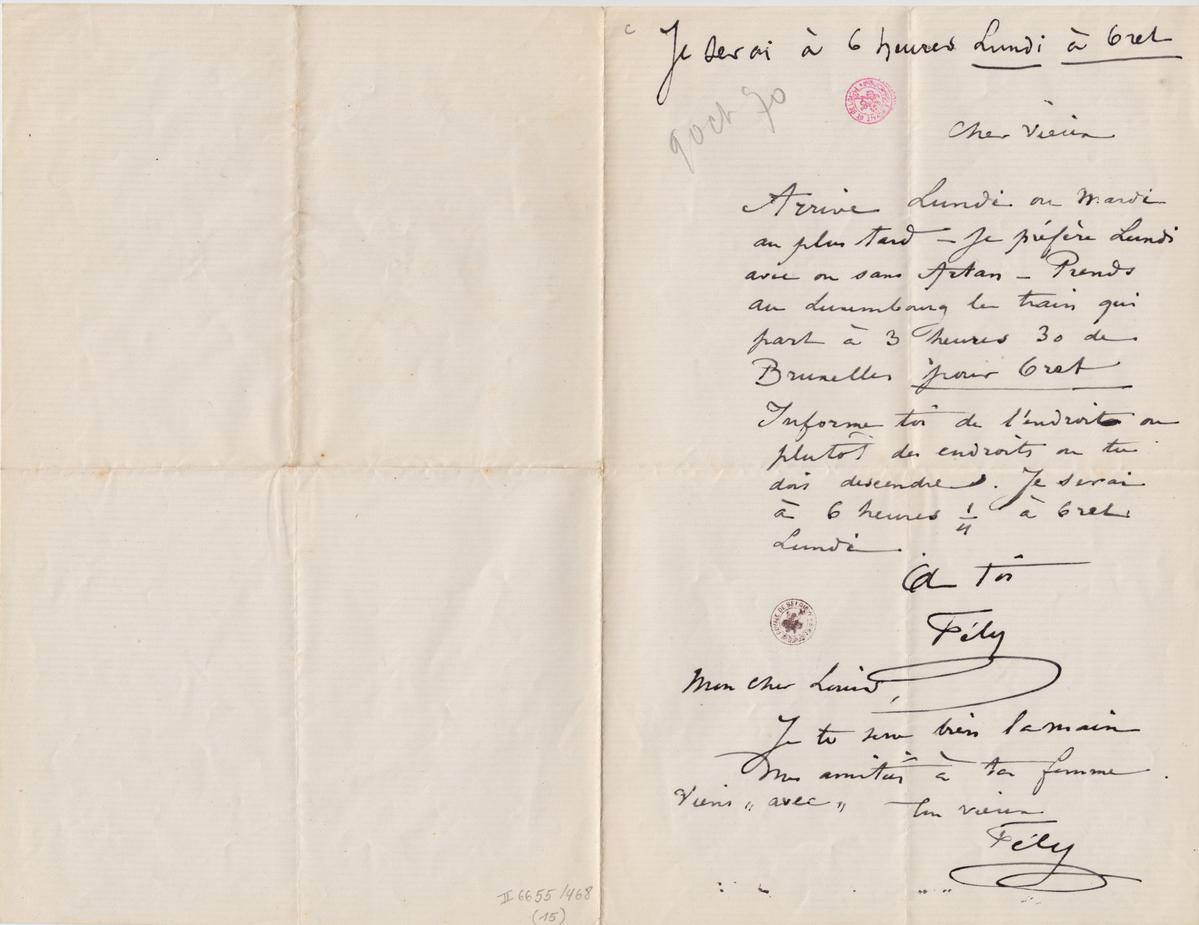 Je serai à 6 heures Lundi à Gret
9 oct 70
Cher Vieux
Arrive Lundi ou Mardi
au plus tard – Je préfère Lundi
avec ou sans Artan – Prends
au Luxembourg le train qui
part à 3 heures 30 de
Bruxelles pour Gret
Informe toi de l'endroit ou
plutot des endroits ou tu
dois descendre. Je serai
à 6 heures 1/4 à Gret
Lundi.
à toi
Fély
Mon cher Louis,
Je te serre bien la main
Mes amitiés à ta femme.
Viens „ avec „ Ton vieux
Fély
II 6655/468
(15)